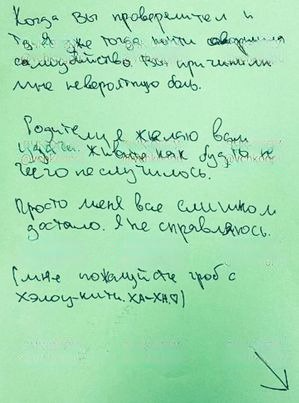 Когда вы проверяете и
то я уже тогда почти совершила
самоубийство. Вы причинили
мне невероятную боль.
Родители, я желаю вам
удачи. Живите как будто не
чего не случилось.
Просто меня все слишком
достало. Я не справляюсь.
(мне пожалуйста гроб с
хэлоу-кити. ХА-ХА♡)